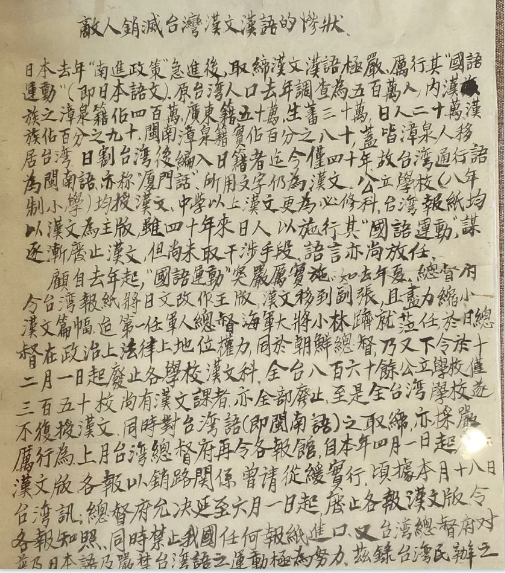 敵人銷滅台灣漢文漢語的慘狀、
日本去年"南進政策"急進後,取締漢文漢語極嚴、厲行其"國語
運動"(即日本語文)、原台灣人口去年調查為五百萬人、內漢
族之漳泉籍佔四百萬,廣東籍五十萬,生蕃三十萬,日人二十萬漢
族佔百分之九十,閩南漳泉籍實佔百分之八十,蓋皆漳泉人移
居台灣、日割台灣後編入日籍者迄今僅四十年,故台灣通行語
為閩南語,亦称"廈門話",所用文字仍為漢文、公立學校(八年
制小學)均授漢文、中学以上漢文更為必修科、台灣報紙均
以漢文為主版、雖四十年來日人以施行其"國語運動",謀
逐漸廢止漢文、但尚未取干涉手段、語言亦尚放任、
顧自去年起,"國語運動"突嚴厲實施、如去年夏、總督府
令台灣報紙,將日文改作主版,漢文移到副張,且盡力縮小
漢文篇幅、迨第一任軍人總督海軍大將小林躋就茲任於日總
督在政治上法律上地位權力,同於朝鮮總督,乃又下令於十
二月一日起廢止各學校漢文科、全台八百六十餘公立學校,僅
三百五十校尚有漢文課者,亦全部廢止、至是全台灣學校遂
不復授漢文、同時對台灣語(即閩南語)之取締,亦採嚴
厲行為、上月台灣總督府再令各報館,自本年四月一日起
漢文版、各報以銷路關係曾請從緩實行、頃據本月十八日
台灣訊、總督府允決延至六月一日起,廢止各報漢文版、令
各報知照、同時禁止我國任何報紙進口、又台灣總督府对
及日本語及嚴禁台灣語之運動極為努力、茲錄台灣民辦之